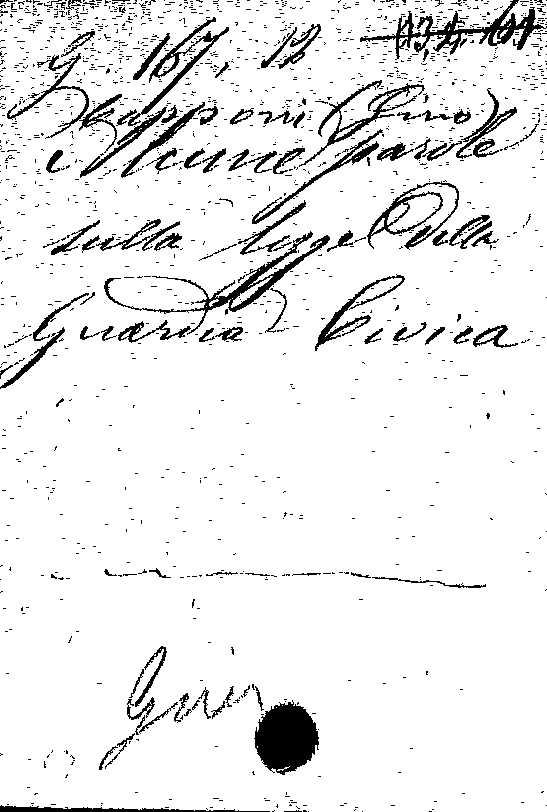 G. 167, 12
Capponi (Gino)
Alcune parole
sulla legge della
Guardia Civica